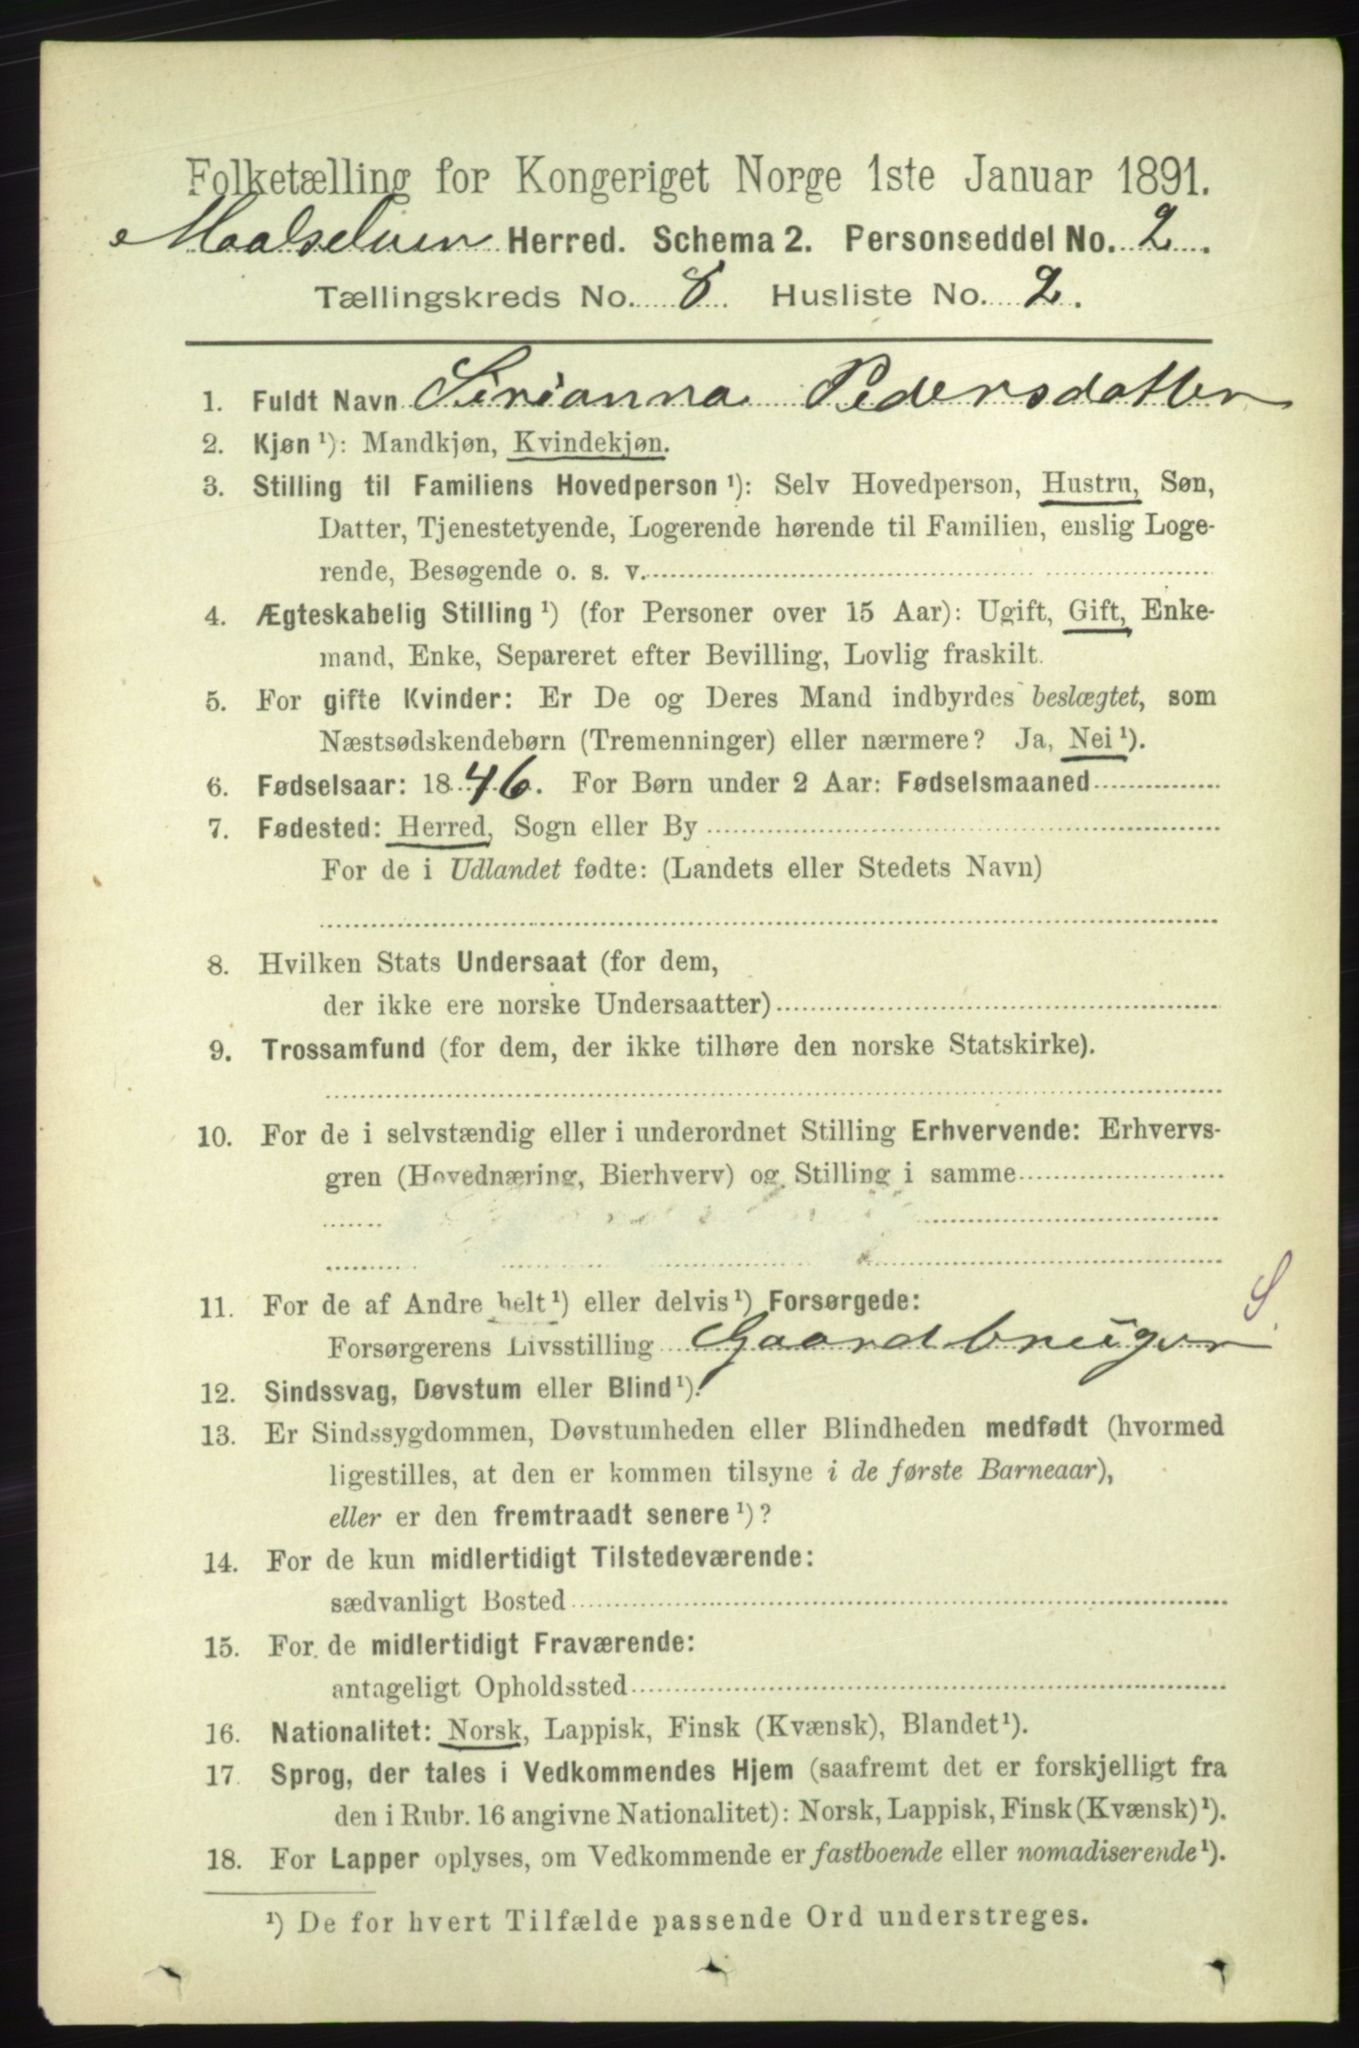 Folketælling for Kongeriget Norge 1ste Januar 1891.
Maalselven Herred. Schema 2. Personseddel No. 2.
Tællingskreds No. 8. Husliste No. 2.
1. Fuldt Navn Sirianna Pedersdatter
2. Kjøn ¹): Mandkjøn, Kvindekjøn.
3. Stilling til Familiens Hovedperson ¹): Selv Hovedperson, Hustru, Søn,
Datter, Tjenestetyende, Logerende hørende til Familien, enslig Loge-
rende, Besøgende o. s. v.
4. Ægteskabelig Stilling ¹) (for Personer over 15 Aar): Ugift, Gift, Enke-
mand, Enke, Separeret efter Bevilling, Lovlig fraskilt.
5. For gifte Kvinder: Er De og Deres Mand indbyrdes beslægtet, som
Næstsødskendebørn (Tremenninger) eller nærmere? Ja, Nei ¹).
6. Fødselsaar: 1846. For Børn under 2 Aar: Fødselsmaaned
7. Fødested: Herred, Sogn eller By
For de i Udlandet fødte: (Landets eller Stedets Navn)
8. Hvilken Stats Undersaat (for dem,
der ikke ere norske Undersaatter)
9. Trossamfund (for dem, der ikke tilhøre den norske Statskirke).
10. For de i selvstændig eller i underordnet Stilling Erhvervende: Erhvervs-
gren (Hovednæring, Bierhverv) og Stilling i samme
11. For de af Andre helt ¹) eller delvis ¹) Forsørgede: S.
Forsørgerens Livsstilling Gaardbruger
12. Sindssvag, Døvstum eller Blind ¹).
13. Er Sindssygdommen, Døvstumheden eller Blindheden medfødt (hvormed
ligestilles, at den er kommen tilsyne i de første Barneaar),
eller er den fremtraadt senere ¹)?
14. For de kun midlertidigt Tilstedeværende:
sædvanligt Bosted
15. For de midlertidigt Fraværende:
antageligt Opholdssted
16. Nationalitet: Norsk, Lappisk, Finsk (Kvænsk), Blandet ¹).
17. Sprog, der tales i Vedkommendes Hjem (saafremt det er forskjelligt fra
den i Rubr. 16 angivne Nationalitet): Norsk, Lappisk, Finsk (Kvænsk) ¹).
18. For Lapper oplyses, om Vedkommende er fastboende eller nomadiserende ¹).
¹) De for hvert Tilfælde passende Ord understreges.